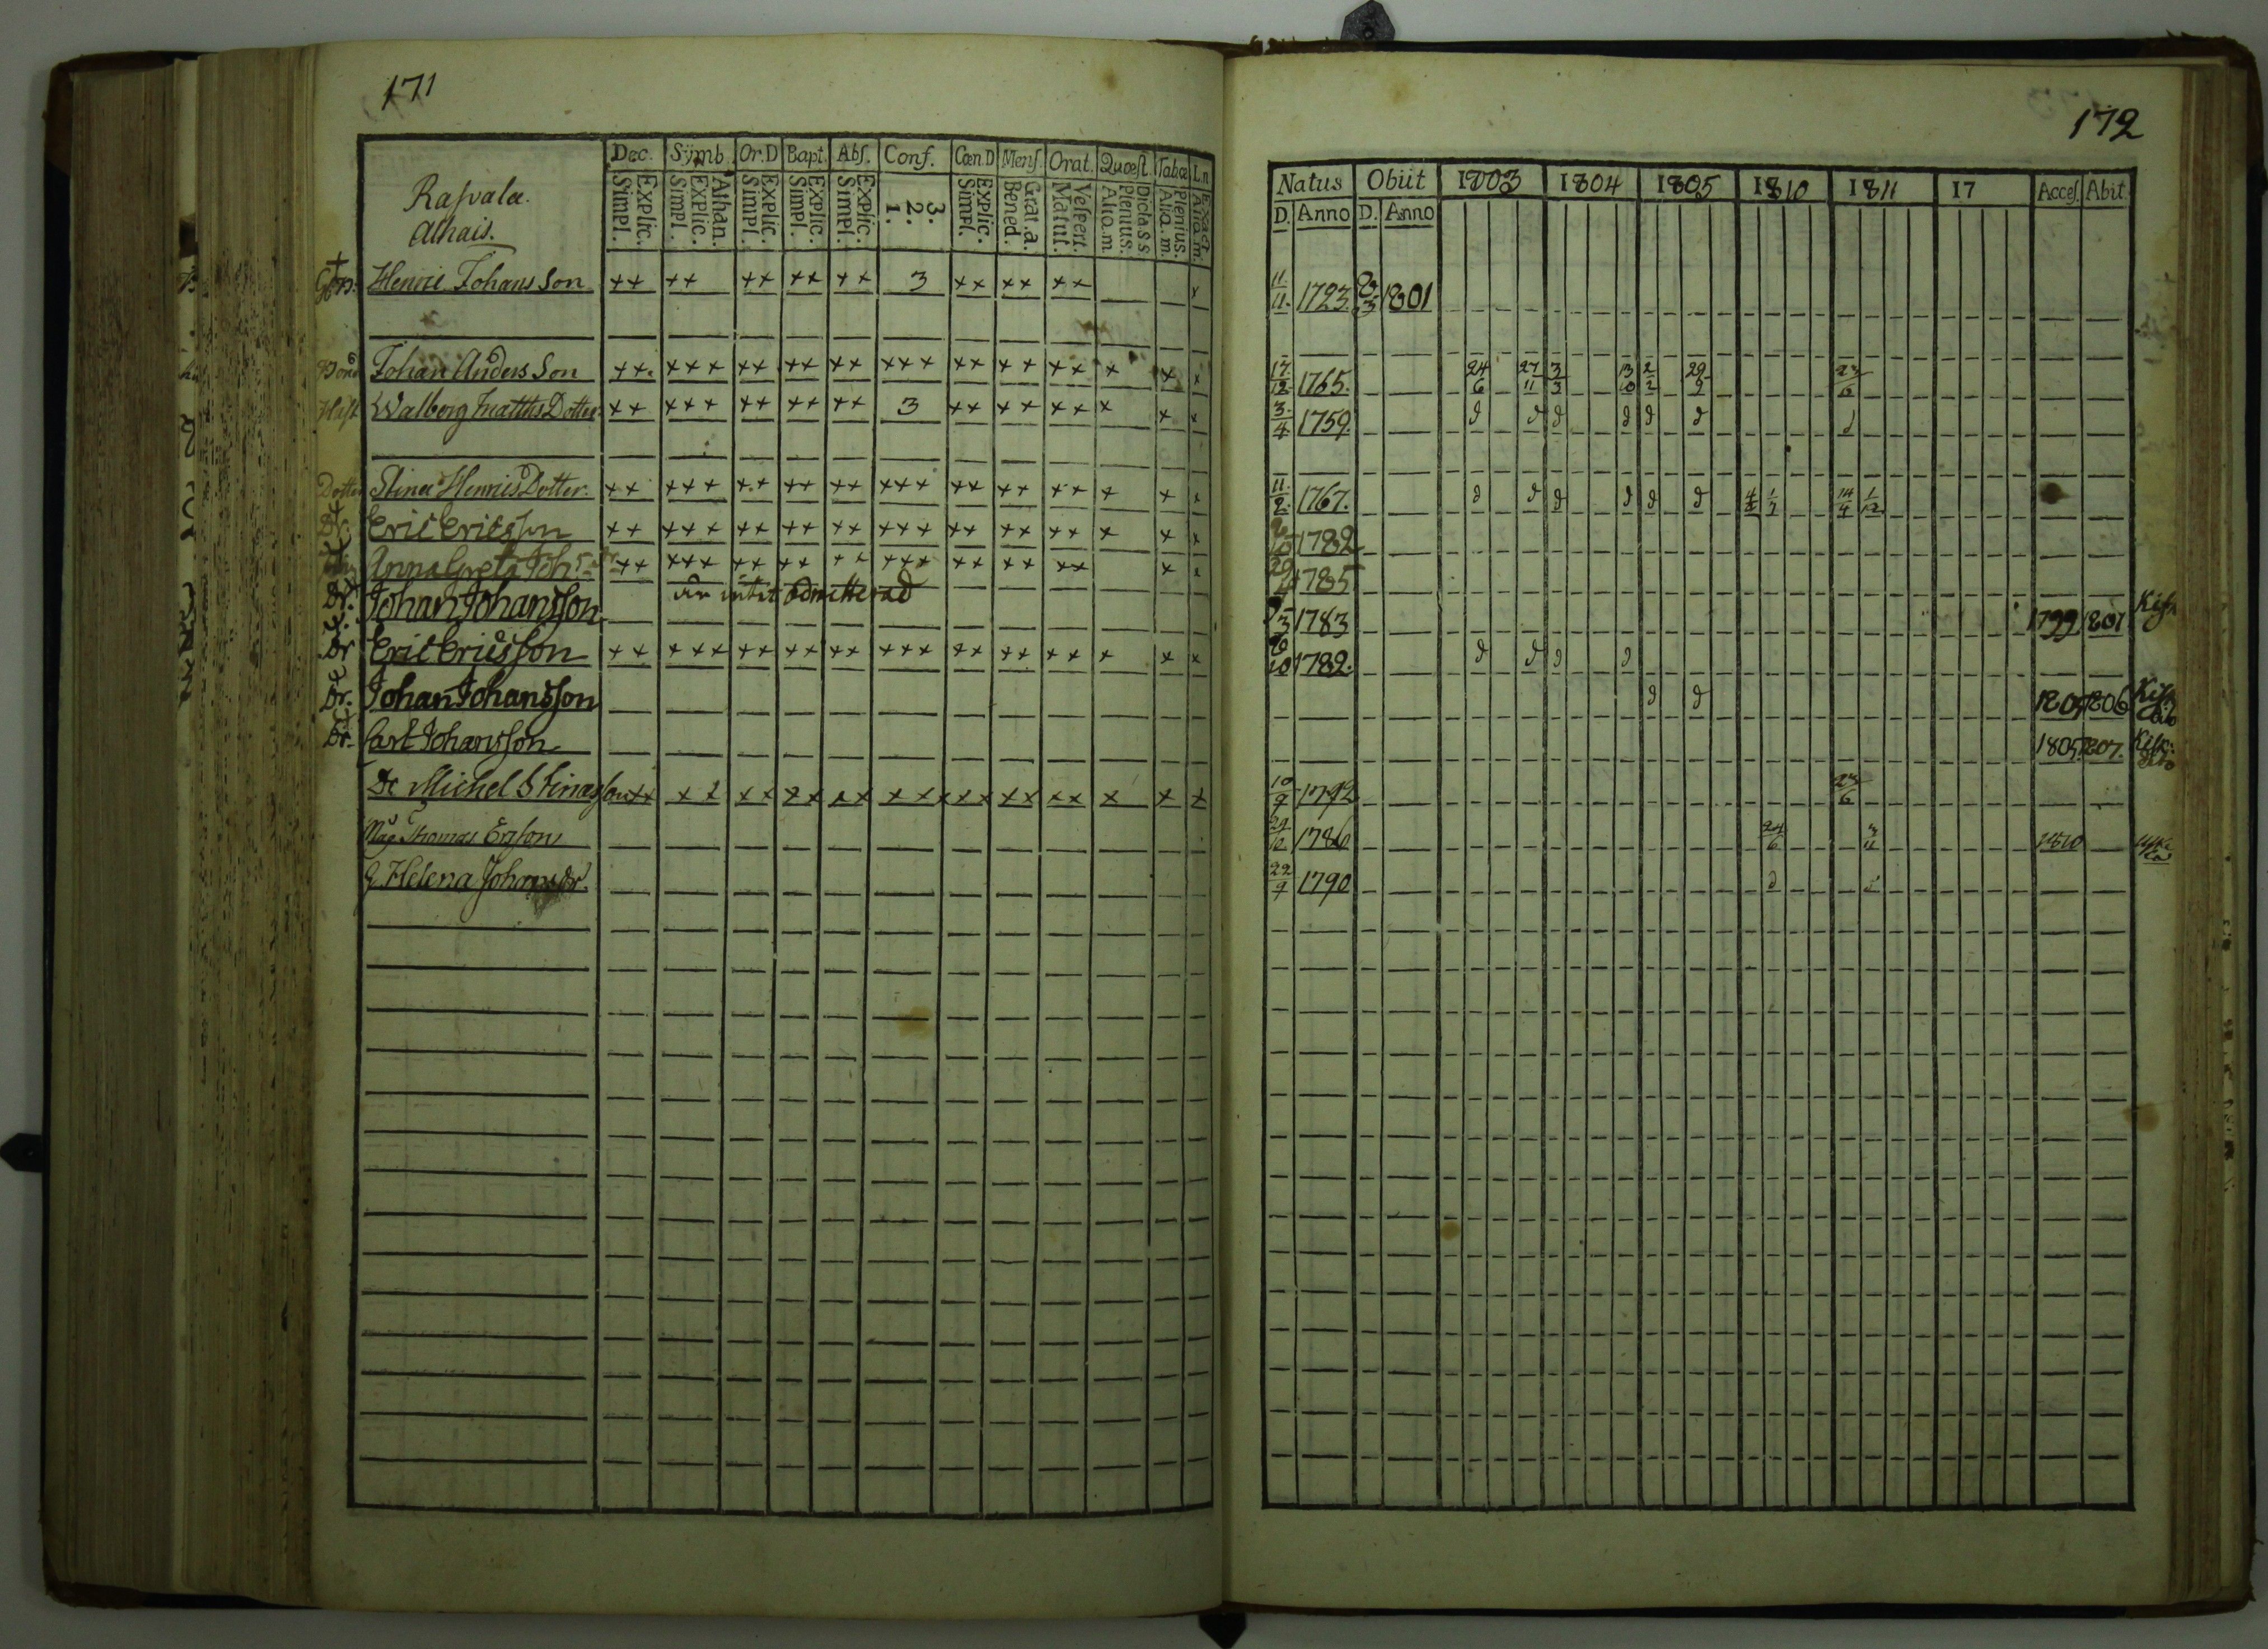 171
Dec. Symb. Or.D Bapt. Abſ. Conf. Cœn.D Menſ. Orat. Quœſt. Tabœ L.n
Explic. Simpl. Athan. Explic. Simpl. Explic. Simpl. Explic. Simpl. Explic. Simpl. 3. 2. 1. Explic. Simpl. Grat.a. Bened. Veſpert. Matut. Dicta.s.s. Plenius. Aliq.m. Plenius. Aliq.m. Exact. Aliq.m.
Raſvala
Alhais.
Henric Johans Son ++ ++ ++ ++ ++ 3 ++ ++ ++ x
Johan Anders Son ++ +++ ++ ++ ++ +++ ++ ++ ++ x x x
Walborg Matths Dotter ++ +++ ++ ++ ++ 3 ++ ++ ++ x x x
Dotter Stina Henrics Dotter. ++ +++ ++ ++ ++ +++ ++ ++ ++ x x x
Eric Ericsson ++ +++ ++ ++ ++ +++ ++ ++ ++ x x x
Anna Greta Joh ++ +++ ++ ++ ++ +++ ++ ++ ++ x x
Dr. Johan Johansson är intet admitterad
Dr Eric Ericsson ++ +++ ++ ++ ++ +++ ++ ++ ++ x x x
Dr. Johan Johansson
Dr. Carl Johansson
Dr Michel Stinasson
Måg Thomas Ersson
H. Helena Johansdr.
172
Natus Obiit 1803 1804 1805 1810 1811 17 Acceſ. Abit
D. Anno D. Anno
11/11 1723. 8/3 1801
17/12 1765. 24/6 27/11 3/3 13/10 2/2 29/9 23/6
3/4 1759. d d d d d d d
11/2 1767. d d d d d d 14/4 1/12
6/10 1782
1785
1783 1799 1801
6/10 1782. d d d d
d d 1805 1806
1805 1807.
10/9 1792 23/6
1786 24/6 3/11 1810
22/9 1790 d d